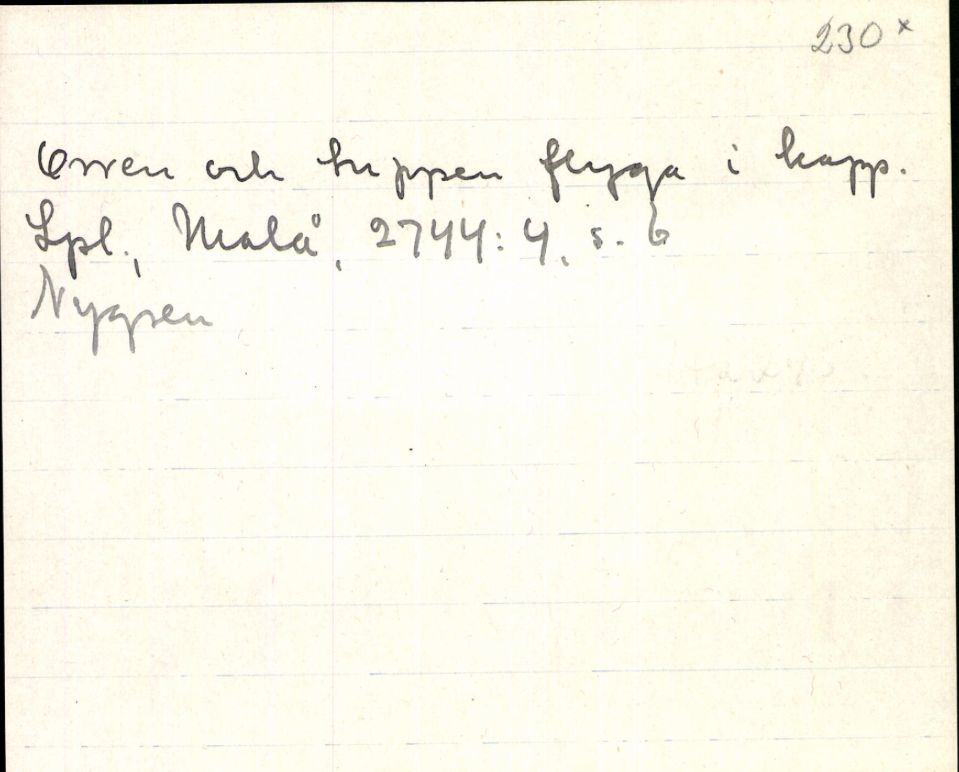 230 x
Orren och tuppen flyga i kapp.
Lpl., Malå, 2744:4, s. 6